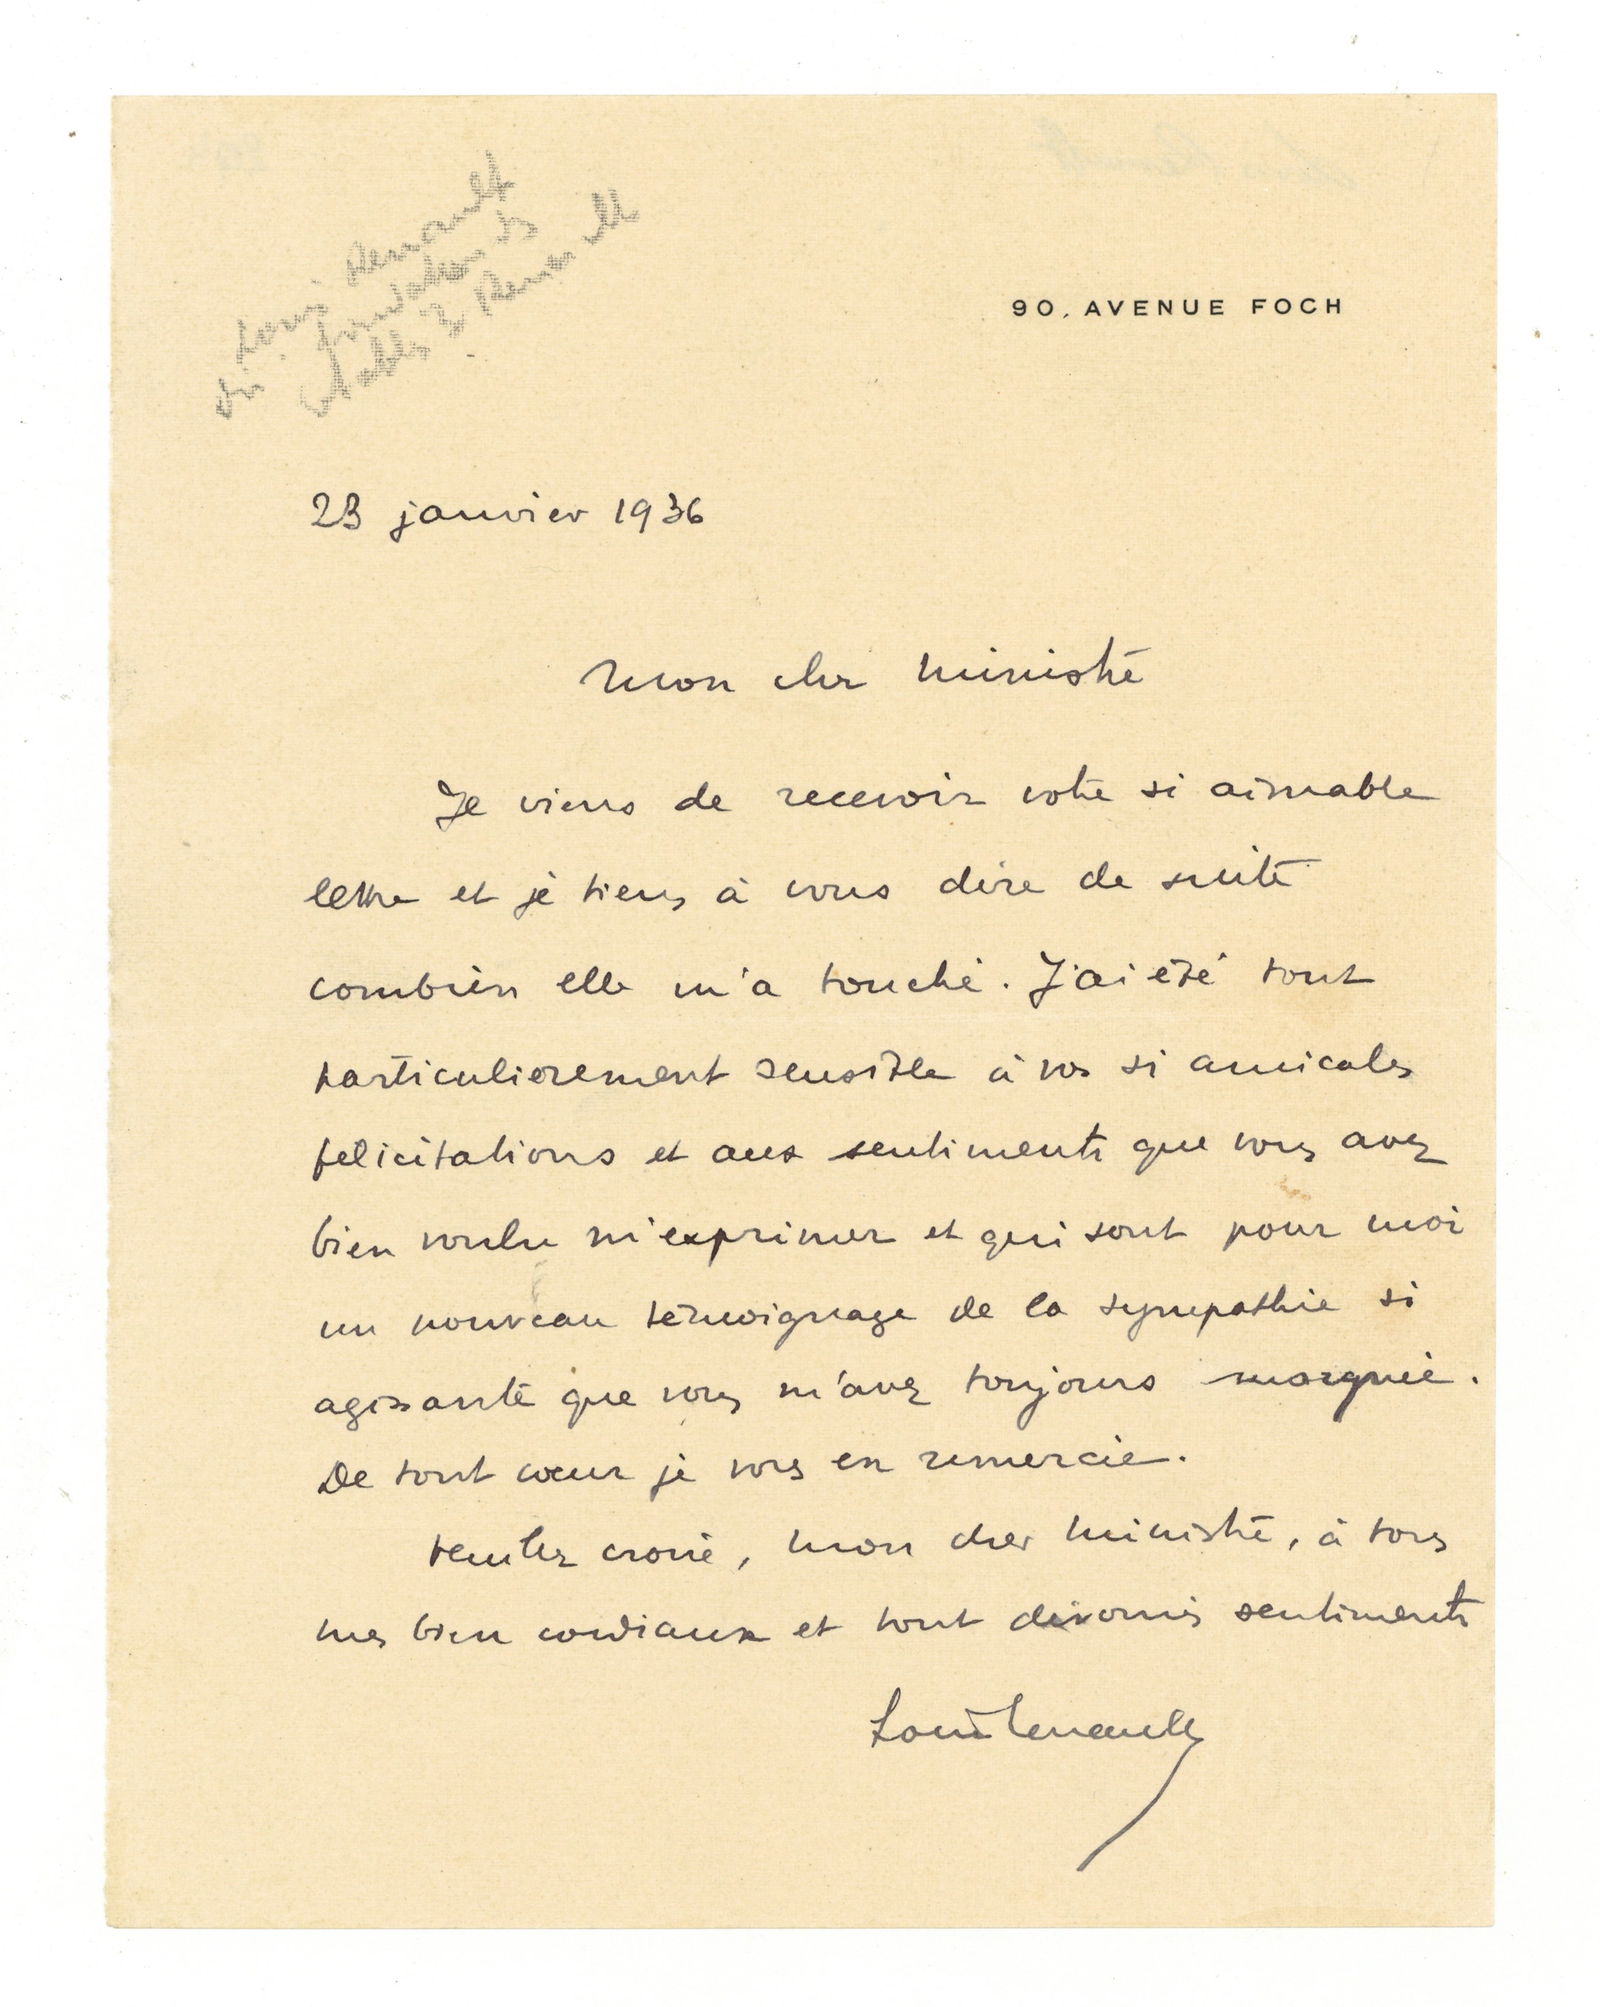 Louis Renault
fondation des
Usines Renault
90, AVENUE FOCH
23 janvier 1936
Mon cher Ministre
Je viens de recevoir votre si aimable
lettre et je tiens à vous dire de suite
combien elle m'a touché. J'ai été tout
particulierement sensible à vos si amicales
felicitations et aux sentiments que vous avez
bien voulu m'exprimer et qui sont pour moi
un nouveau témoignage de la sympathie si
agissante que vous m'avez toujours marquée.
De tout cœur je vous en remercie.
Veuillez croire, mon cher Ministre, à tous
mes bien cordiaux et tout dévoués sentiments
Louis Renault